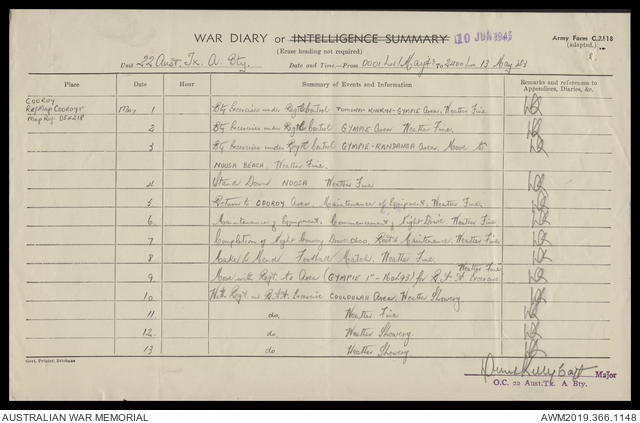 WAR DIARY or INTELLIGENCE SUMMARY
10 JUN 1943
Army Form C.2118
(adapted.)
(Erase heading not required)
Unit 22 Aust. Tk. A. Bty. Date and Time—From 0001 hrs 1 May 43 to 2400 hrs 13 May 43
Place Date Hour Summary of Events and Information Remarks and references to Appendices, Diaries, &c.
COOROY
Ref Map COOROY
Map Ref.
May 1 Bty Exercises under Regtl Control POMONA-KINKIN-GYMPIE Area. Weather Fine
2 Bty Exercises under Regtl Control GYMPIE Area Weather Fine.
3 Bty Exercises under Regtl Control GYMPIE-KANDANGA Area. Move to
NOOSA BEACH, Weather Fine.
4 Stand Down NOOSA Weather Fine
5 Return to COOROY Area. Maintenance of Equipment. Weather Fine
6 Maintenance of Equipment. Commencement of Night Drive. Weather Fine
7 Completion of Night Convoy Drive 0600. Rest & Maintenance. Weather Fine
8 Make & Mend Football Match. Weather Fine.
9 Move with Regt. to Area (GYMPIE 1" - ) for Exercise Weather Fine
10 With Regt. in Exercise COOLOOLAH Area. Weather Showery.
11. do. Weather Fine
12. do. Weather Showery.
13 do. Weather Showery
Govt. Printer, Brisbane
Major
O.C. 22 Aust.Tk. A Bty.
AUSTRALIAN WAR MEMORIAL AWM2019.366.1148